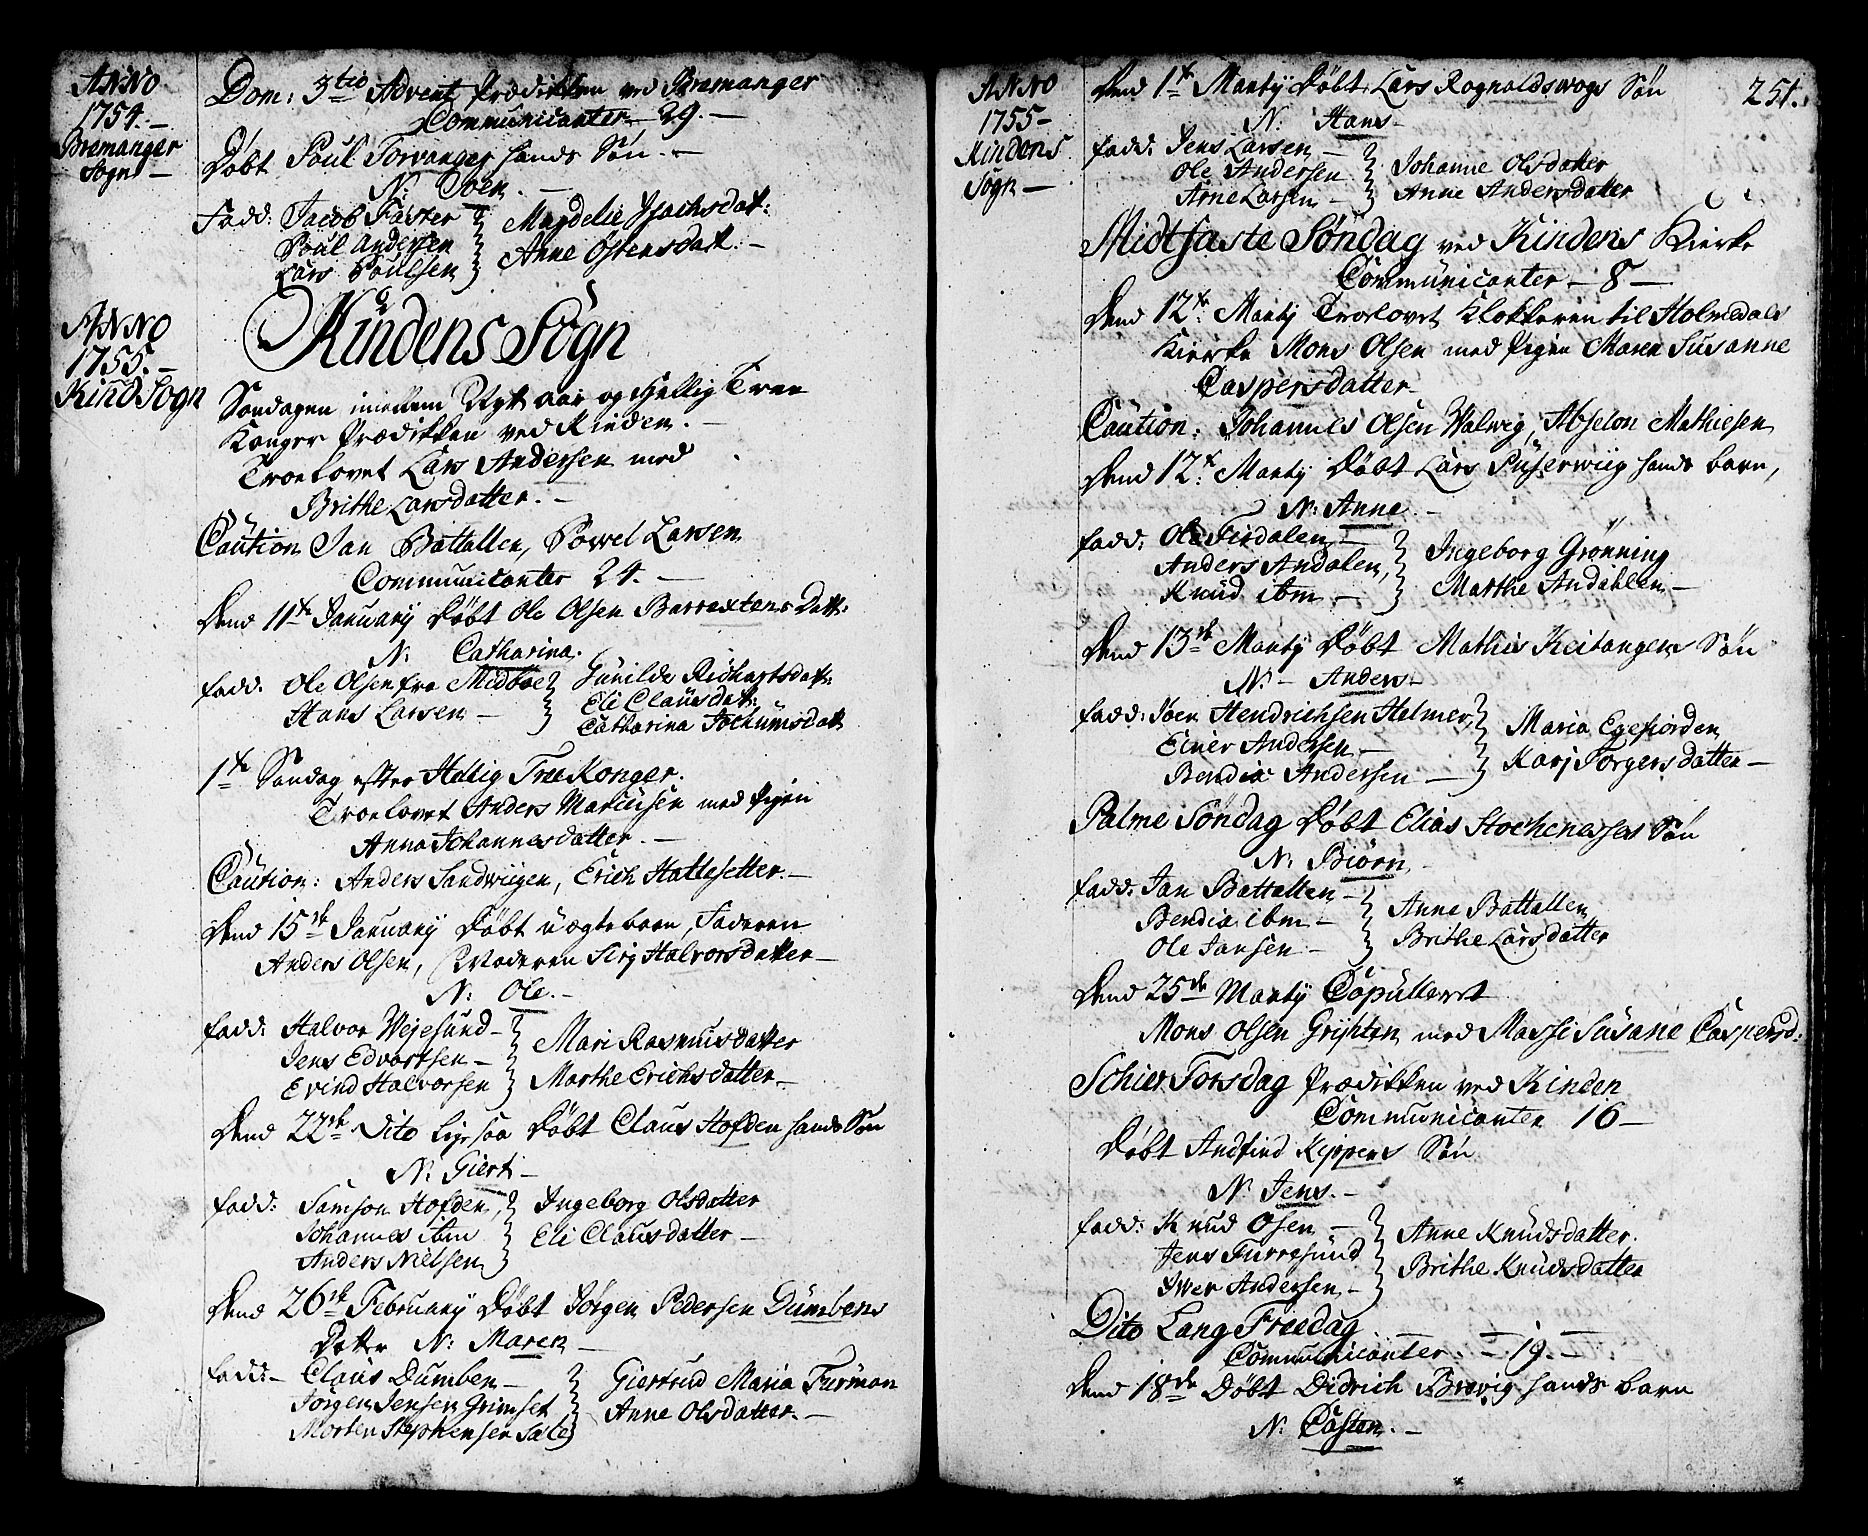 ANNO
1754. –
Bremanger
Sogn –
Dom: 3tio Advent Prædikken ved Bremanger
Communicanter 29. –
Døbt Poul Torvanger hands Søn. –
N: Joen. –
Fadd: Jacob Faster
Poul Andersen
Lars Poulsen
Magdelie Isachsdat:
Anne Ostensdat: –
ANNO
1755. –
Kind Sogn
Kindens Sogn
Søndagen imellem Nyt aar og Hellig Tree
Konger Prædikken ved Kinden. –
Troelovet Lars Andersen med
Brithe Larsdatter. –
Caution Jan Battallen, Povel Larsen
Communicanter 24. –
Dend 11te January Døbt Ole Olsen Barrextens Datt:
N: Catharina.
fadd: Ole Olsen fra Midbøe
Hans Larsen –
Gunilde Richartsdat:
Eli Clausdat:
Catharina Jochumsdat
1te Søndag efter Hellig Tree Konger.
Troelovet Anders Mariusen med Pigen
Anna Johannesdatter. –
Caution: Anders Sandwiigen, Erich Hattesetter. –
Dend 15de January Døbt uægte barn, Faderen
Anders Olsen, Moderen Sirj Halvorsdatter –
N: Ole. –
fadd: Halvor Vejesund –
Jens Edvartsen –
Evind Halvorsen
Mari Rasmusdatter
Marthe Erichsdatter –
Dend 22de Dito ligesaa Døbt Claus Hofden hands Søn
N: Giert –
fadd: Samson Hofden,
Johannes ibm
Anders Nielsen
Ingeborg Olsdatter
Eli Clausdatter –
Dend 26de February Døbt Jørgen Pedersen Dumbens
Datter N: Maren –
fadd – Claus Dumben –
Jørgen Jensen Grimset
Morten Stephensen Sale
Giertrud Maria Furman
Anne Olsdatter. –
ANNO
1755 –
Kindens
Sogn –
251.
Dend 1te Marty Døbt Lars Rognaldswogs Søn
N. Hans –
fadd: Jens Larsen –
Ole Andersen
Arne Larsen –
Johanne Olsdatter
Anne Andersdatter
Midtfaste Søndag ved Kindens Kierke
Communicanter – 8 –
Dend 12te Marty Troelovet Klokkeren til Holmedals
Kierke Mons Olsen med Pigen Maren Susanne
Caspersdatter
Caution: Johannes Olsen Walwig, Abselon Mathiesen
Dend 12te Marty Døbt Lars Puserwiig hands barn,
N: Anne –
fadd: Ole Firdalen –
Anders Andalen,
Knud ibm –
Ingeborg Grønning
Marthe Andahlen –
Dend 13de Marty Døbt Mathis Keitangens Søn
N: – Anders –
fadd: Joen Hendrichsen Helmer,
Einer Andersen –
Bendix Andersen –
Maria Egefiorden
Karj Torgersdatter –
Palme Søndag Døbt Elias Stochenesses Søn
N: Biørn –
fadd: Jan Battallen –
Bendix ibm –
Ole Jansen –
Anne Battallen
Brithe Larsdatter
Dend 25de Marty Copulleret
Mons Olsen Grishten med Massi Susane Caspersd:
Schier Torsdag Prædikken ved Kinden
Communicanter 16 –
Døbt Andfind Kippens Søn
N: Jens. –
fadd: Knud Osen –
Jens Furresund
Iwer Andersen –
Anne Knudsdatter.
Brithe Knudsdatter
Dito Lang Freedag – – –
Communicanter. – 19. –
Dend 18de Døbt Didrich Brevig hands barn
N: Casten. –